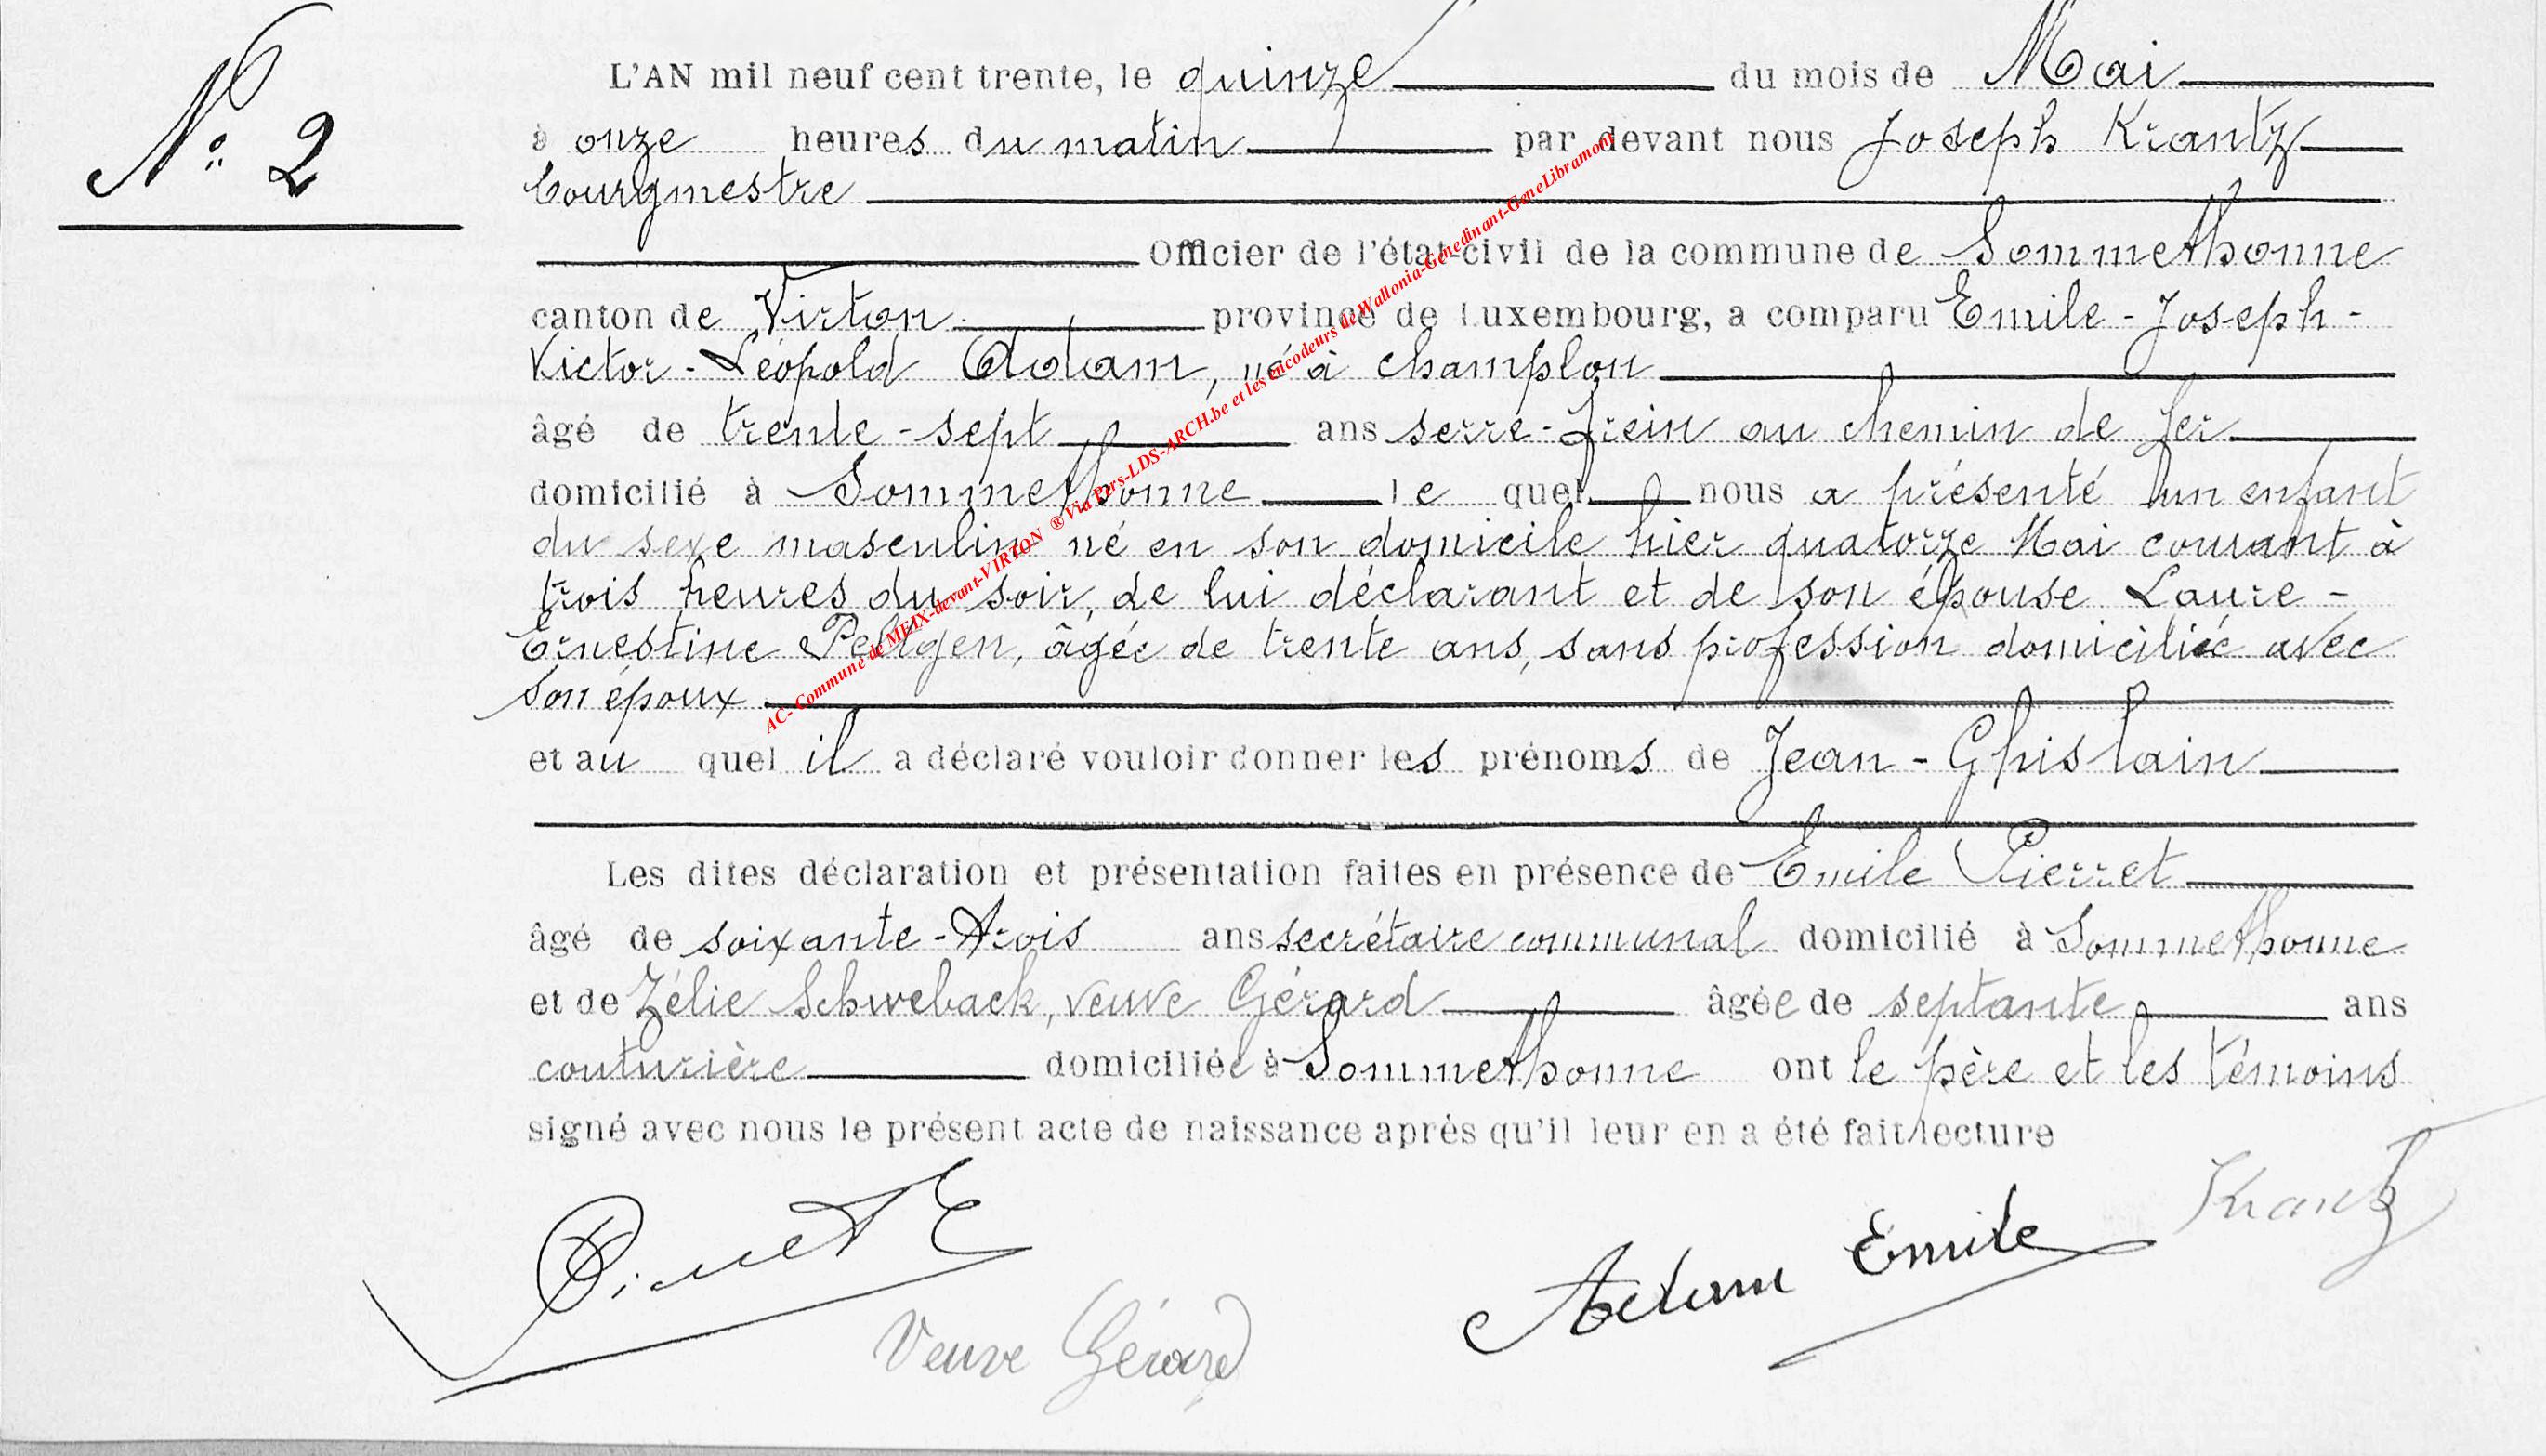 Nº 2
L'AN mil neuf cent trente, le quinze du mois de Mai
à onze heures du matin par devant nous Joseph Krantz
bourgmestre
Officier de l'état-civil de la commune de Sommethonne
canton de Virton province de Luxembourg, a comparu Emile-Joseph-
Victor-Léopold Adam, né à Champlon
âgé de trente-sept ans serre-frein au chemin de fer
domicilié à Sommethonne le quel nous a présenté un enfant
du sexe masculin né en son domicile hier quatorze Mai courant à
trois heures du soir, de lui déclarant et de son épouse Laure-
Ernestine Peltgen, âgée de trente ans, sans profession domiciliée avec
son époux
et au quel il a déclaré vouloir donner les prénoms de Jean-Ghislain
Les dites déclaration et présentation faites en présence de Emile Pierret
âgé de soixante-trois ans secrétaire communal domicilié à Sommethonne
et de Zélie Schweback, veuve Gérard âgée de septante ans
couturière domiciliée à Sommethonne ont le père et les témoins
signé avec nous le présent acte de naissance après qu'il leur en a été fait lecture
Pierret E
Veuve Gérard
Adam Emile
Krantz
AC- Commune de MEIX-devant-VIRTON ® Via Pers-LDS-ARCH.be et les encodeurs de Wallonia-Genedinant-GeneLibramont